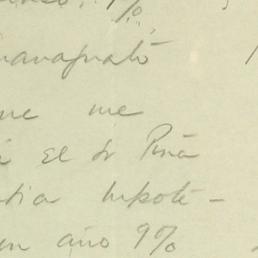 1%
uanajuato
ue me
El Sr Piña
tia hipote-
un año 9%